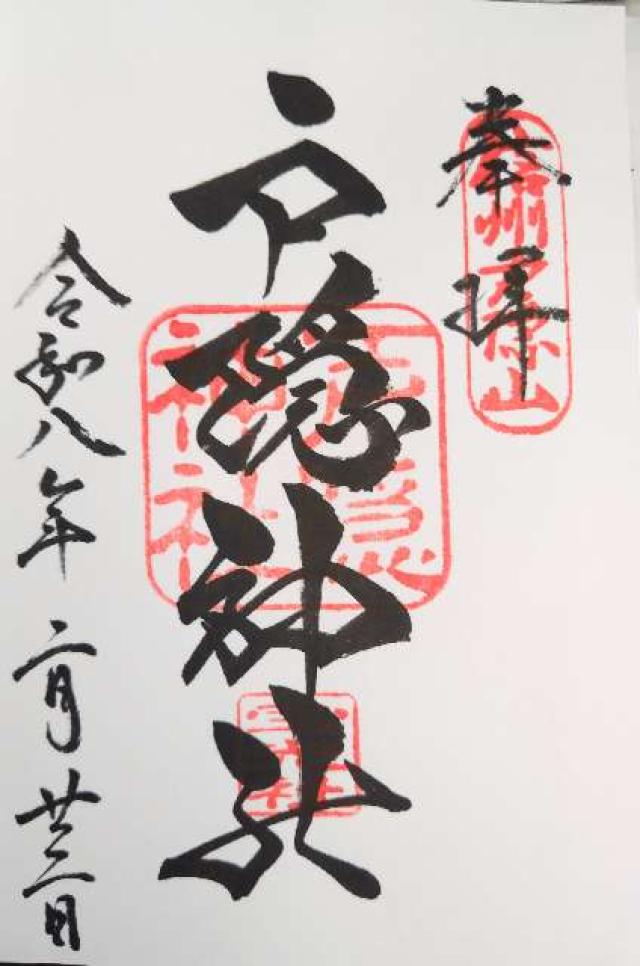 奉拝
信州戸隠山
戸隠神社
戸隠神社
令和八年二月廿二日